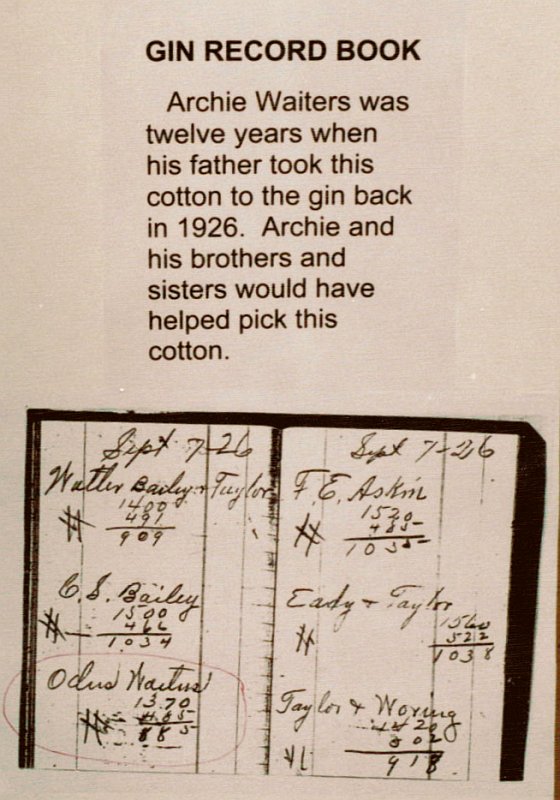 GIN RECORD BOOK
Archie Waiters was
twelve years when
his father took this
cotton to the gin back
in 1926. Archie and
his brothers and
sisters would have
helped pick this
cotton.
Sept 7-26
Walter Bailey + Taylor
1400
491
909
C. S. Bailey
1500
466
1034
Odus Waiters
1370
485
885
Sept 7-26
F. E. Askin
1520
485
1035
Eady + Taylor
1560
522
1038
Taylor +
1420
502
918